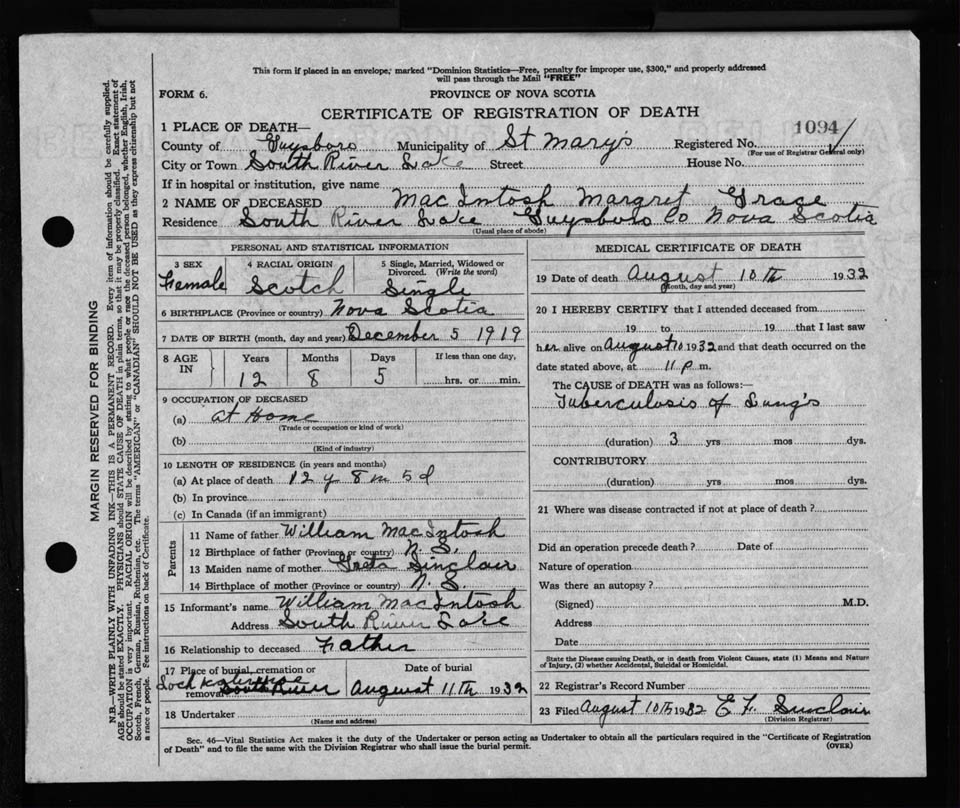 This form if placed in an envelope, marked "Dominion Statistics—Free, penalty for improper use, $300," and properly addressed
will pass through the Mail "FREE"
FORM 6.
PROVINCE OF NOVA SCOTIA
CERTIFICATE OF REGISTRATION OF DEATH
1 PLACE OF DEATH—
1094
County of Guysboro Municipality of St Mary's Registered No.
(For use of Registrar General only)
City or Town South River Lake Street House No.
If in hospital or institution, give name
2 NAME OF DECEASED MacIntosh Margret Grase
Residence South River Lake Guysboro Co Nova Scotia
(Usual place of abode)
PERSONAL AND STATISTICAL INFORMATION
3 SEX
Female
4 RACIAL ORIGIN
Scotch
5 Single, Married, Widowed or
Divorced. (Write the word)
Single
6 BIRTHPLACE (Province or country) Nova Scotia
7 DATE OF BIRTH (month, day and year) December 5 1919
8 AGE
IN
Years Months Days If less than one day,
12 8 5 hrs. or min.
9 OCCUPATION OF DECEASED
(a) at Home
(Trade or occupation or kind of work)
(b)
(Kind of industry)
10 LENGTH OF RESIDENCE (in years and months)
(a) At place of death 12 y 8 m 5 d
(b) In province
(c) In Canada (if an immigrant)
Parents
11 Name of father William MacIntosh
12 Birthplace of father (Province or country) N. S.
13 Maiden name of mother Greta Sinclair
14 Birthplace of mother (Province or country) N. S.
15 Informant's name William MacIntosh
Address South River Lake
16 Relationship to deceased Father
17 Place of burial, cremation or
removal Loch South River
Date of burial
August 11th 1932
18 Undertaker
(Name and address)
MEDICAL CERTIFICATE OF DEATH
19 Date of death August 10th 1932
(Month, day and year)
20 I HEREBY CERTIFY that I attended deceased from
19 to 19 that I last saw
her alive on August 10 1932 and that death occurred on the
date stated above, at 11 p m.
The CAUSE of DEATH was as follows:—
Tuberculosis of Lung's
(duration) 3 yrs mos dys.
CONTRIBUTORY
(duration) yrs mos dys.
21 Where was disease contracted if not at place of death?
Did an operation precede death? Date of
Nature of operation
Was there an autopsy?
(Signed) M.D.
Address
Date
State the Disease causing Death, or in death from Violent Causes, state (1) Means and Nature
of Injury, (2) whether Accidental, Suicidal or Homicidal.
22 Registrar's Record Number
23 Filed August 10th 1932 E F. Sinclair
(Division Registrar)
Sec. 46—Vital Statistics Act makes it the duty of the Undertaker or person acting as Undertaker to obtain all the particulars required in the "Certificate of Registration
of Death" and to file the same with the Division Registrar who shall issue the burial permit.
(OVER)
MARGIN RESERVED FOR BINDING
N.B.—WRITE PLAINLY WITH UNFADING INK—THIS IS A PERMANENT RECORD. Every item of information should be carefully supplied.
AGE should be stated EXACTLY. PHYSICIANS should STATE CAUSE OF DEATH in plain terms, so that it may be properly classified. Exact statement of
OCCUPATION is very important. RACIAL ORIGIN will be described by stating to what people or race the deceased person belonged, whether English, Irish,
Scotch, French, German, Russian, Ruthenian, etc. The terms "AMERICAN" or "CANADIAN" SHOULD NOT BE USED as they express citizenship but not
a race or people. See instructions on back of Certificate.